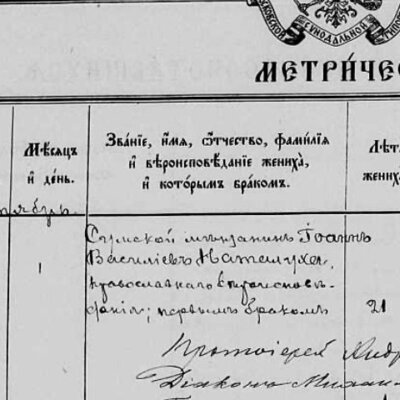 СУНОДАЛЬНОЙ
МЕТРИ́ЧЕС
Мѣ́сяцъ
и҆ де́нь.
Зва́нїе, и҆́мя, ѻ҆́тчество, фами́лїя
и҆ вѣроисповѣ́данїе жениха̀,
и҆ кото́рымъ бра́комъ.
Лѣт
жених
1
Сумской мѣщанинъ Іоаннъ
Василіевъ
православнаго вѣроисповѣ-
данія; первымъ бракомъ
21
Протоіерей Андр
Діаконъ Михаи